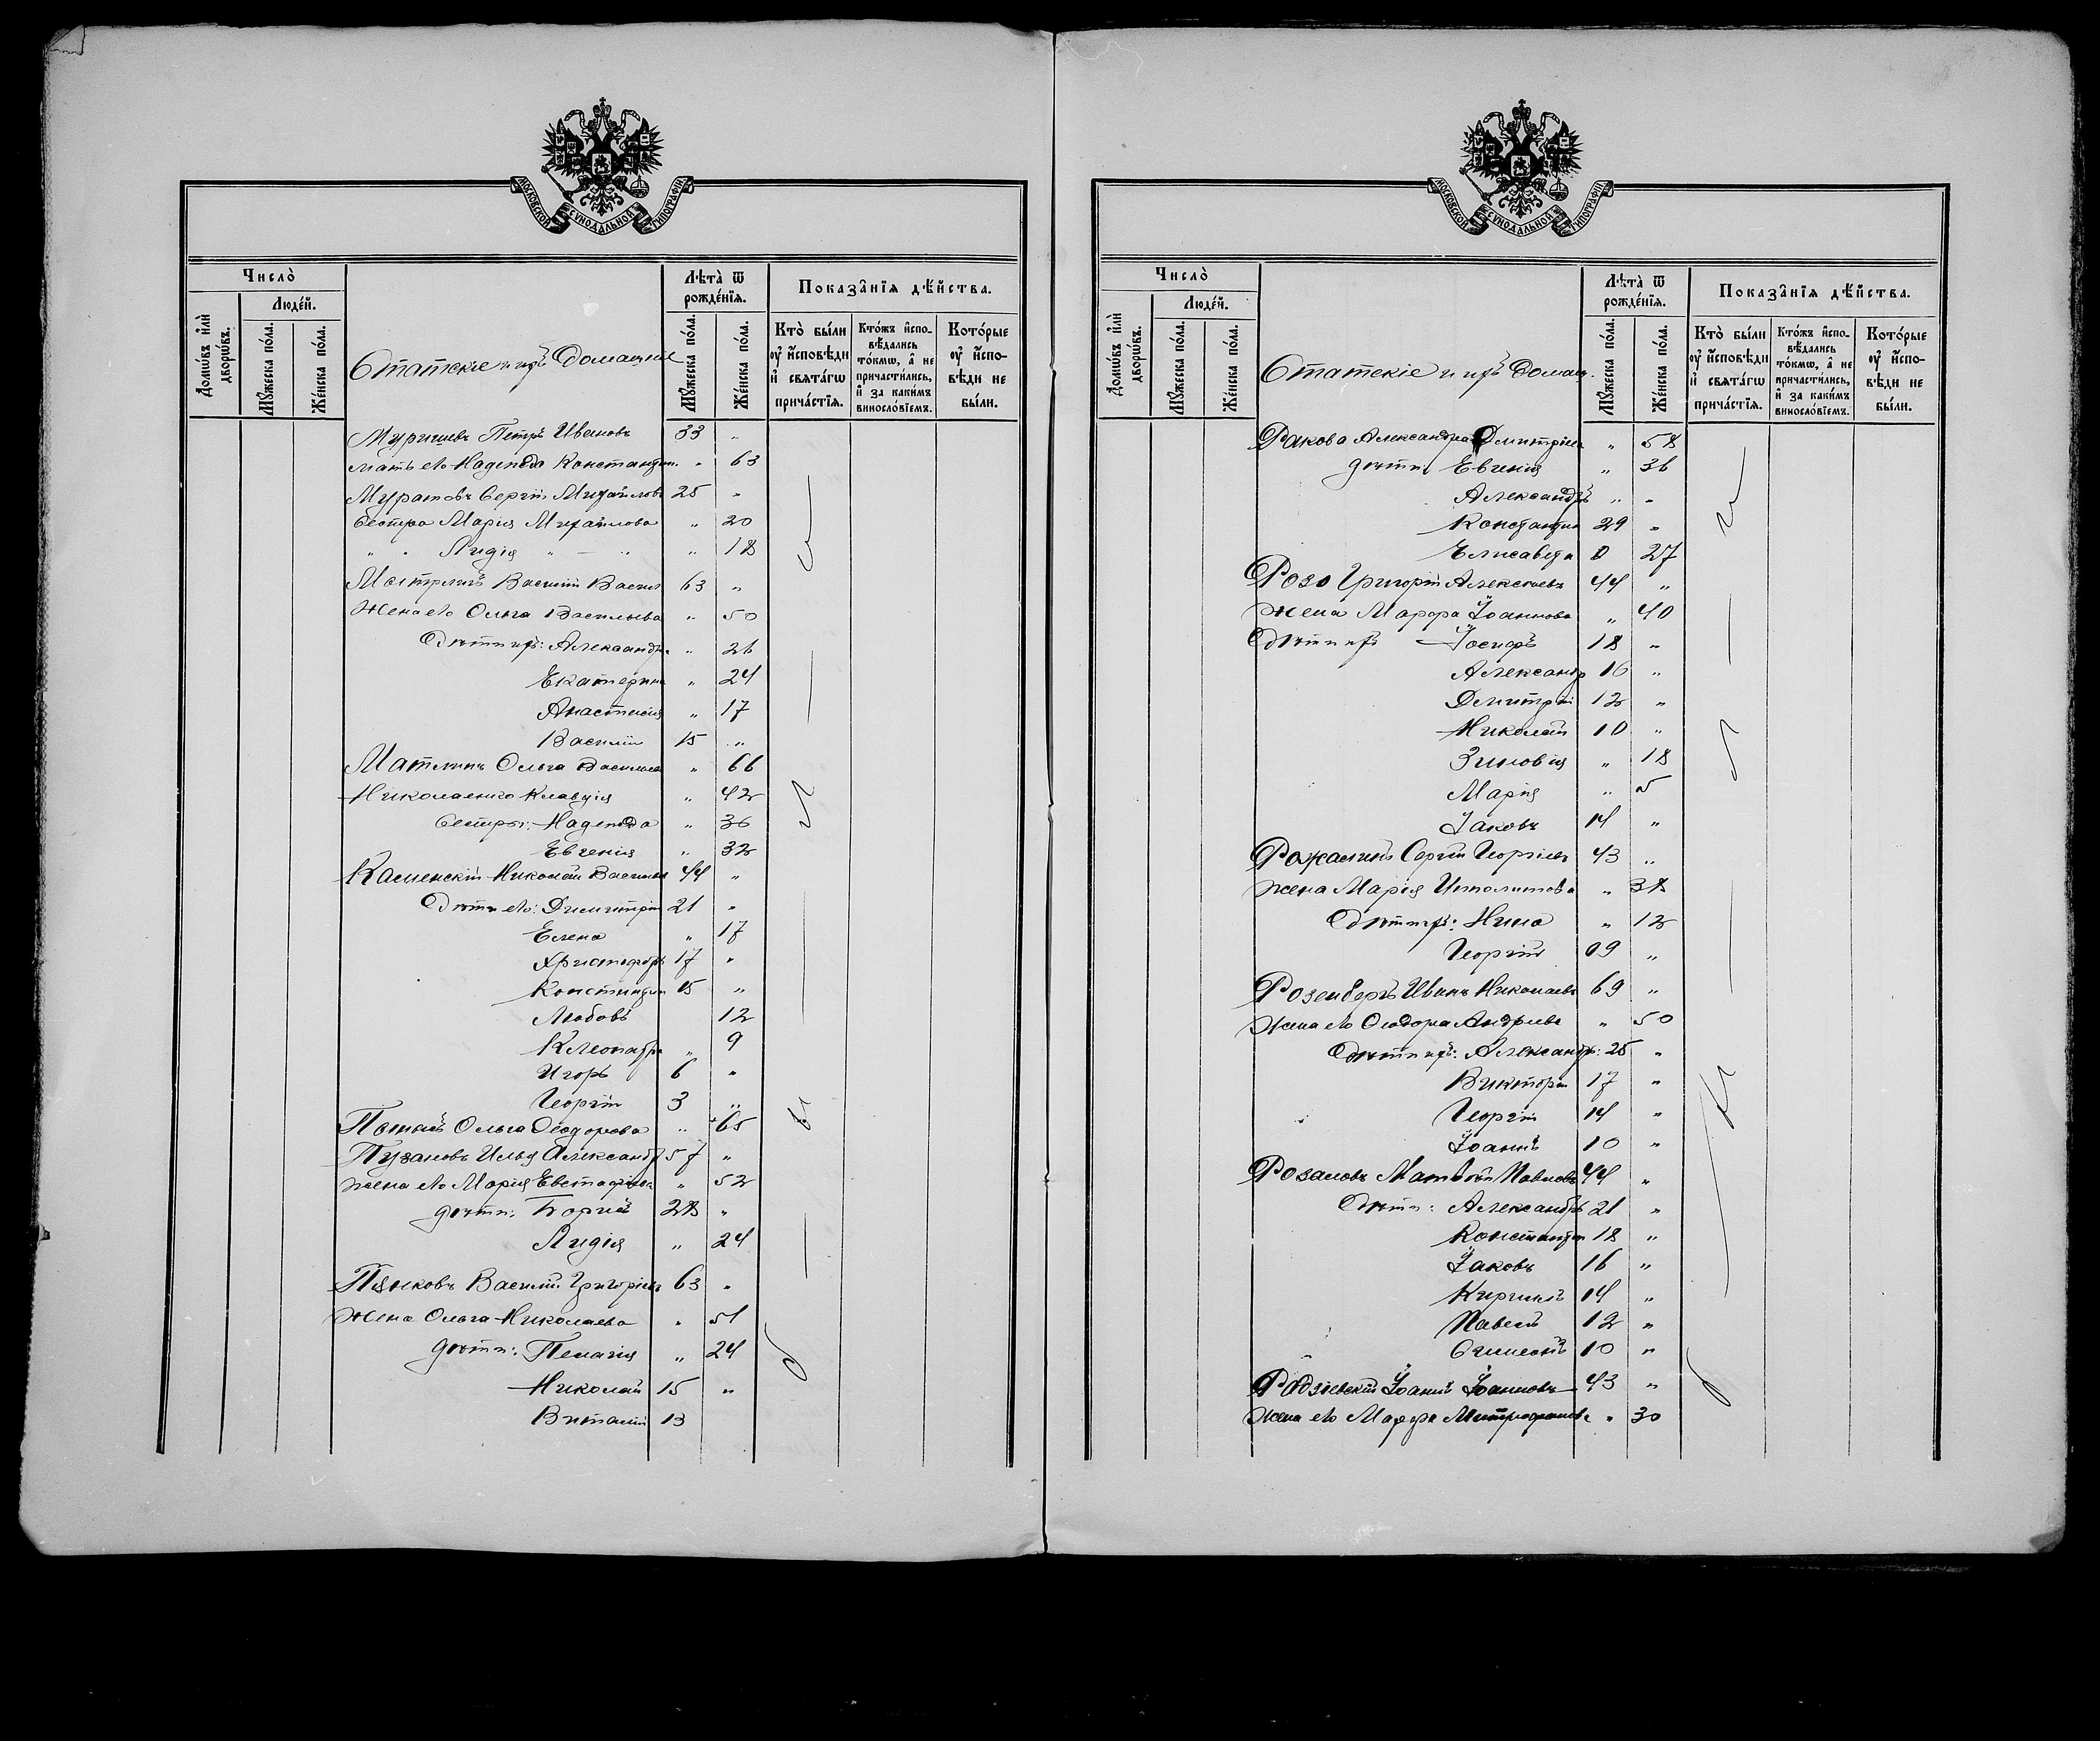 МОСКОВСКОЙ СѴНОДАЛЬНОЙ ТИПОГРАФІИ
Число̀
Люде́й.
Домѡ́въ и҆лѝ дворѡ́въ.
Мꙋ́жеска по́ла.
Же́нска по́ла.
Статскіе и ихъ домашніе
Лѣта̀ ѿ рожде́нїѧ.
Мꙋ́жеска по́ла.
Же́нска по́ла.
Показа̑нїѧ дѣ́йства.
Кто̀ бы́ли ᲂу҆ и҆сповѣди и҆ свѧта́гѡ прича́стїѧ.
Кто́жъ и҆спо-вѣдались то́кмѡ, а҆ не причасти́лись, и҆ за каки́мъ винослѡвїемъ.
Кото́рые ᲂу҆ и҆спо-вѣди не бы́ли.
Петръ Ивановъ 33 "
Мать его Надежда Константин. " 63
Муратовъ Сергій Михайловъ 25 "
Сестра Марія Михайлова " 20
" " Лидія " — " " 18
Василій Васил 63 "
Жена его Ольга Васильева " 50
Дѣти ихъ: Александра " 26
Екатерина " 24
Анастасія " 17
Василій 15 "
Ольга Васильев " 66
Клавдія " 42
Сестры: Надежда " 36
Евгенія " 32
Каменскій Николай Васильев 44 "
Дѣти его: Димитрій 21 "
Елена " 17
Христофоръ 17 "
Константин 15 "
Любовь 12
Клеопатра " 9
Игорь 6 "
Георгій 3 "
Ольга Ѳеодорова " 65
Пузановъ Илья Александр 57 "
жена его Марія Евстафіева " 52
дѣти: Борисъ 28 "
Лидія " 24
Пянковъ Василій Григорьевъ 63 "
Жена Ольга Николаева " 51
дѣти: Пелагія " 24
Николай 15 "
Виталій 13
МОСКОВСКОЙ СѴНОДАЛЬНОЙ ТИПОГРАФІИ
Число̀
Люде́й.
Домѡ́въ и҆лѝ дворѡ́въ.
Мꙋ́жеска по́ла.
Же́нска по́ла.
Статскіе и ихъ домаш.
Лѣта̀ ѿ рожде́нїѧ.
Мꙋ́жеска по́ла.
Же́нска по́ла.
Показа̑нїѧ дѣ́йства.
Кто̀ бы́ли ᲂу҆ и҆сповѣди и҆ свѧта́гѡ прича́стїѧ.
Кто́жъ и҆спо-вѣдались то́кмѡ, а҆ не причасти́лись, и҆ за каки́мъ винослѡвїемъ.
Кото́рые ᲂу҆ и҆спо-вѣди не бы́ли.
Ракова Александра Дмитріева " 58
дѣти Евгенія " 36
Александръ " "
Константин 29 "
Елисавета 0 27
Розо Григорій Алексѣевъ 44 "
жена Марфа Іоаннова " 40
Дѣти ихъ Іосифъ 18 "
Александр 16 "
Дмитрій 12 "
Николай 10 "
Зиновія " 18
Марія " 5
Іаковъ 14 "
Сергій Георгіевъ 43 "
жена Марія Ипполитова " 38
Дѣти ихъ: Нина " 12
Георгій 09 "
Розенбергъ Иванъ Николаевъ 69 "
Жена его Ѳеодора Андреева " 50
Дѣти ихъ: Александръ: 25 "
Викторъ 17 "
Георгій 14 "
Іоаннъ 10 "
Розановъ Матвѣй Павловъ 44 "
Дѣти: Александръ 21 "
Константин 18 "
Іаковъ 16 "
Кириллъ 14 "
Павелъ 12 "
Симеонъ 10 "
Радзіевскій Іоаннъ Іоанновъ 43 "
Жена его Марфа Митрофанова " 30